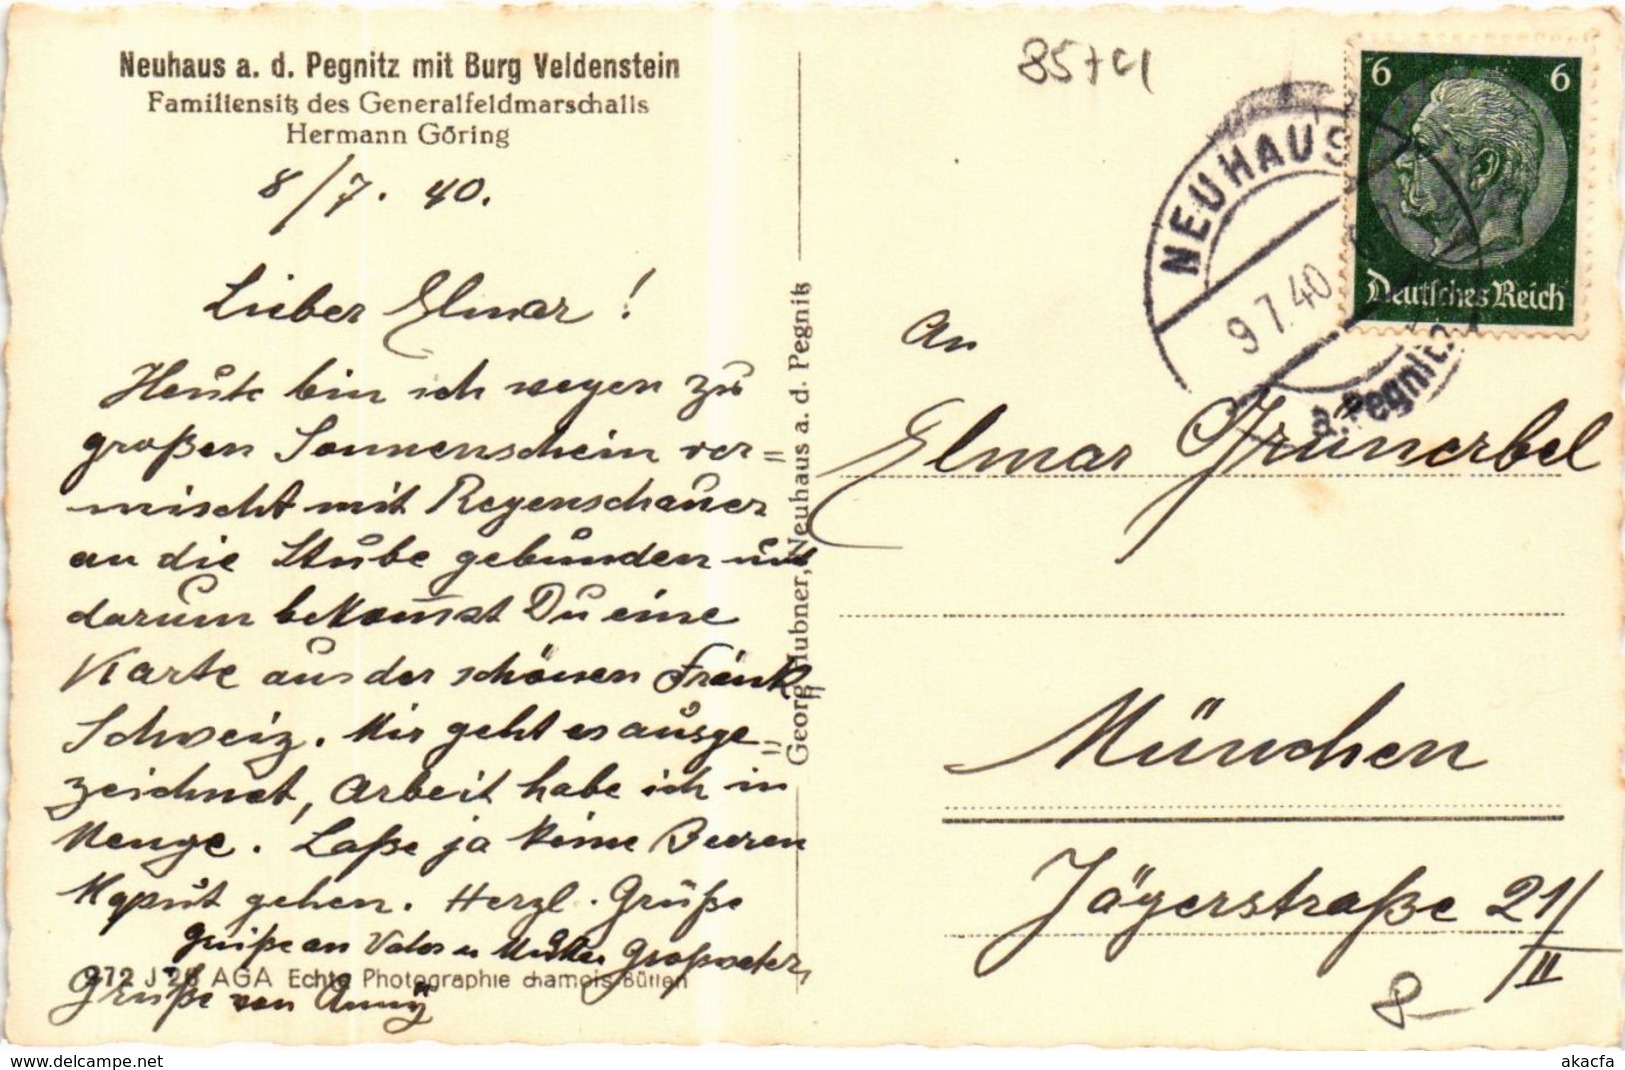 Neuhaus a. d. Pegnitz mit Burg Veldenstein
Familiensitz des Generalfeldmarschalls
Hermann Göring
8/7. 40.
Lieber Elmar!
Heute bin ich wegen zu
großen Sonnenschein ver=
mischt mit Regenschauer
an die Stube gebunden und
darum bekommst Du eine
Karte aus der schönen Fränk
Schweiz. Mir geht es ausge=
zeichnet, Arbeit habe ich in
Menge. Laße ja keine Beeren
kaput gehen. Herzl. Grüße
Grüße an Vater u Mutter Großvater,
972 J 26 AGA Echte Photographie chamois-Bütten
Grüße von
Georg Hubner, Neuhaus a. d. Pegnitz
8574
NEUHAUS
9.7.40
a. d. Pegnitz
6 6
Deutsches Reich
An
Elmar Grünerbel
München
Jägerstraße 21/
II
8-
www.delcampe.net
akacfa